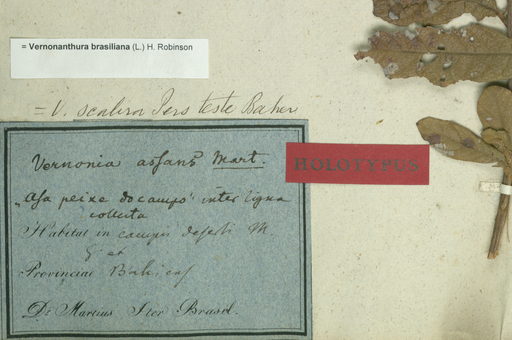 = Vernonanthura brasiliana (L.) H. Robinson
= V. scabra Pers teste Baker
Vernonia assans Mart.
HOLOTYPUS
"Asa peixe do campo" inter ligna
collecta
Habitat in campis deserti
Provinciae Bahiens
Dr Martius Iter Brasil.